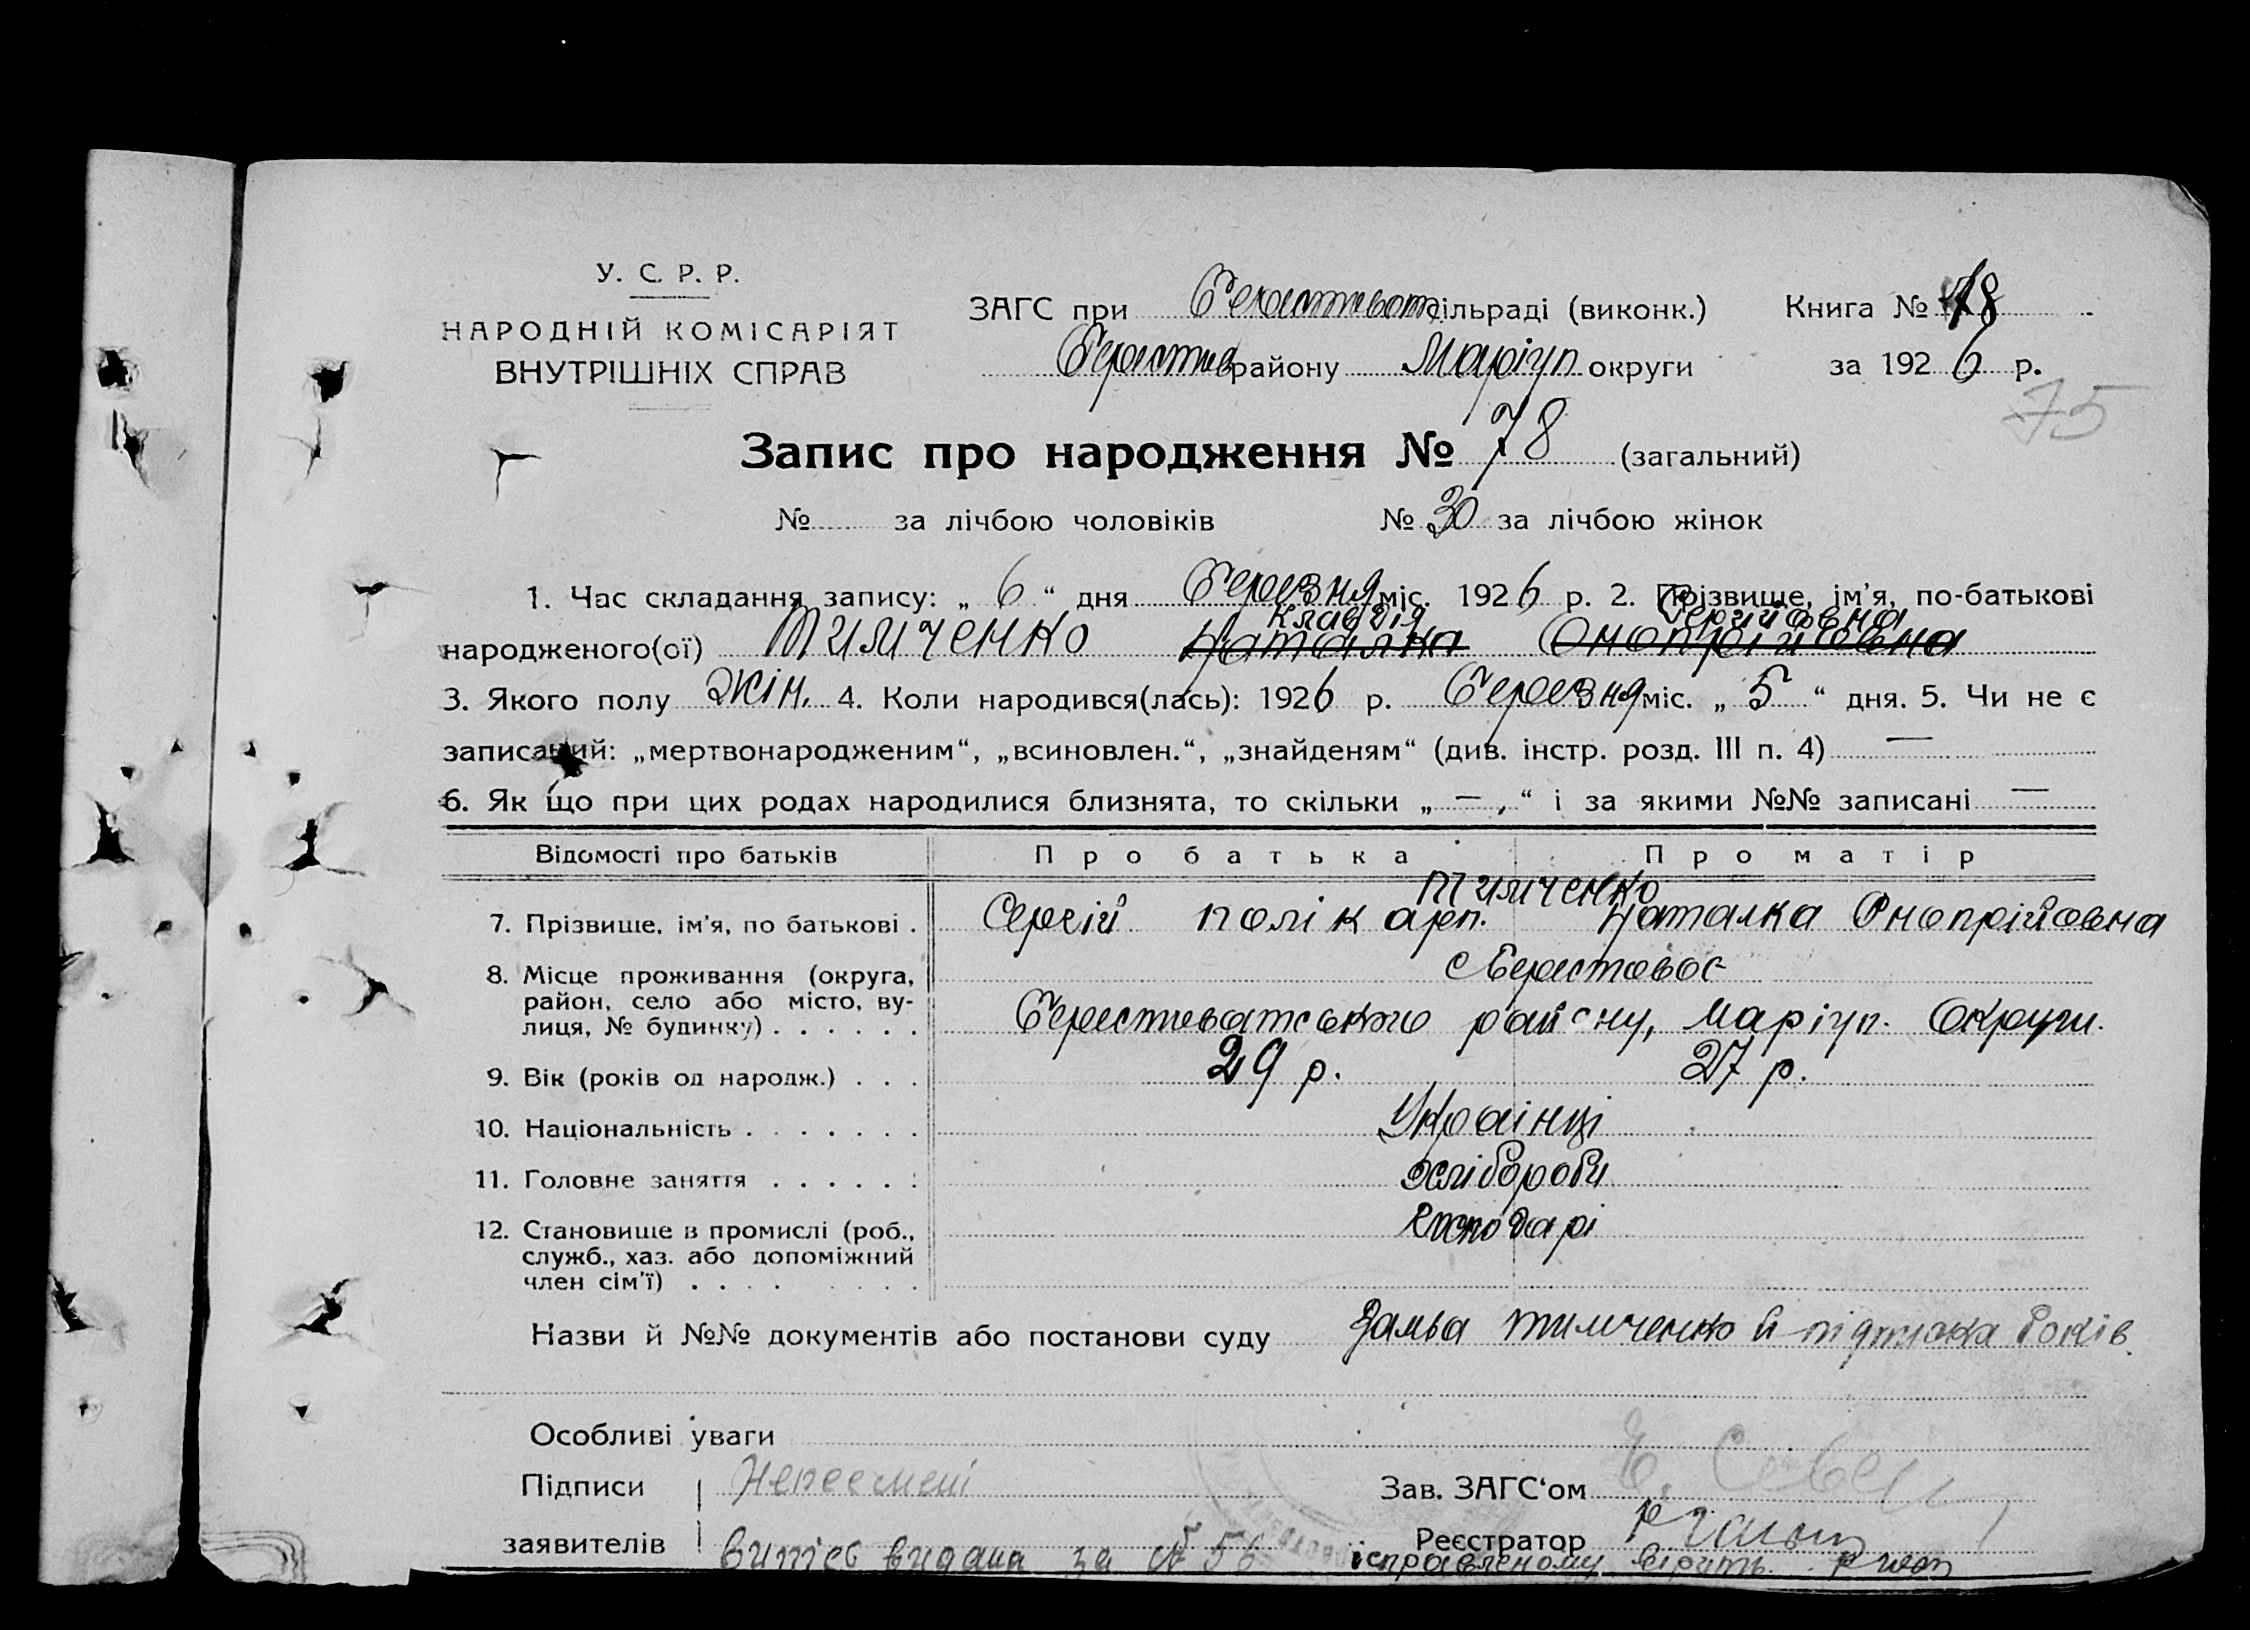 У. С. Р. Р.
НАРОДНІЙ КОМІСАРІЯТ
ВНУТРІШНІХ СПРАВ
ЗАГС при сільраді (виконк.) Книга № 78
Берестов району Маріуп округи за 1926 р.
75
Запис про народження № 78 (загальний)
№ за лічбою чоловіків № 30 за лічбою жінок
1. Час складання запису: „ 6 “ дня Березня міс. 1926 р. 2. Прізвище, ім'я, по-батькові
Клавдія Сергійовна
народженого(ої) Тимченко Наталка Онопрійовна
3. Якого полу жін. 4. Коли народився(лась): 1926 р. Березня міс. „ 5 “ дня. 5. Чи не є
записаний: „мертвонародженим“, „всиновлен.“, „знайденям“ (див. інстр. розд. III п. 4) —
6. Як що при цих родах народилися близнята, то скільки „ — “ і за якими №№ записані —
Відомості про батьків Про батька Про матір
Тимченко
7. Прізвище, ім'я, по батькові . Сергій Полікарп. Наталка Онопрійовна
8. Місце проживання (округа, с Берестовое
район, село або місто, ву-
лиця, № будинку) . . . . . . району, Маріуп. Округи.
9. Вік (років од народж.) . . . 29 р. 27 р.
10. Національність . . . . . . . Українці
11. Головне заняття . . . . . . Хлібороби
12. Становище в промислі (роб., Господарі
служб., хаз. або допоміжний
член сім'ї) . . . . . . . .
Назви й №№ документів або постанови суду Заява Тимченко й
Особливі уваги
Підписи Неписмені Зав. ЗАГС'ом
заявителів Реєстратор
випіс видана за № 56 ісправленому вірить